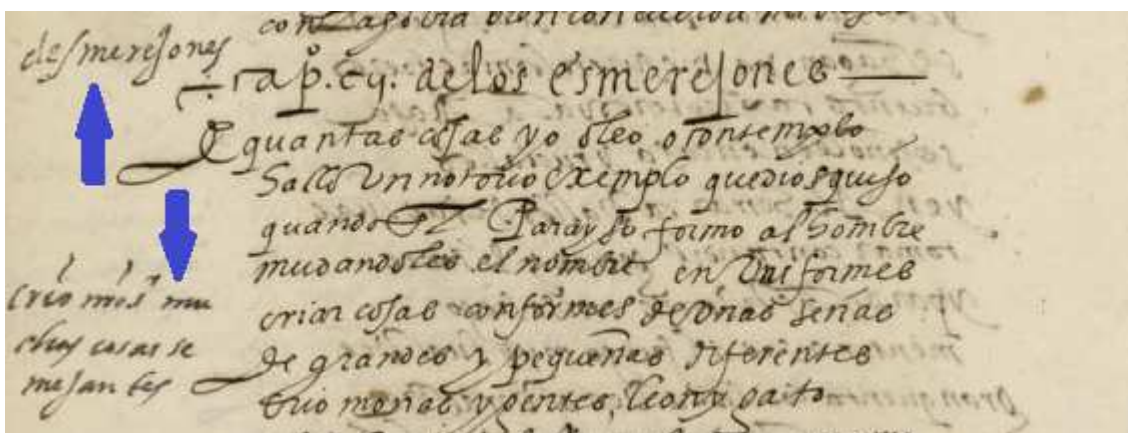 desmerejones
÷ Cap.º cij. de los esmerejones
E quantas cosas yo oleo o contemplo
hallo Un notorio exemplo que dios quiso
quando El Parayso formo al hombre
mudandoles el nombre en Vniformes
criar cosas conformes de Vnas señas
de grandes y pequeñas diferentes
Crio monas y gentes, leon y gato
crio nros sr mu
chas cosas se
mejantes